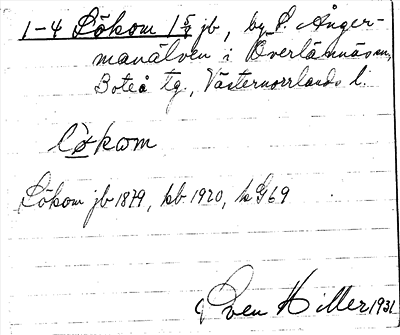 1-4 Lökom 1 5/8 jb, by S. Ånger-
manälven i Överlännäs sn,
Boteå tg, Västernorrlands l.
lökom
Lökom jb 1879, kb 1920, k G 69
Sven Hiller 1931